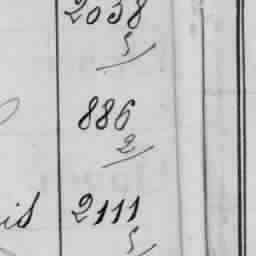 2038
5
886
2
is 2111
5